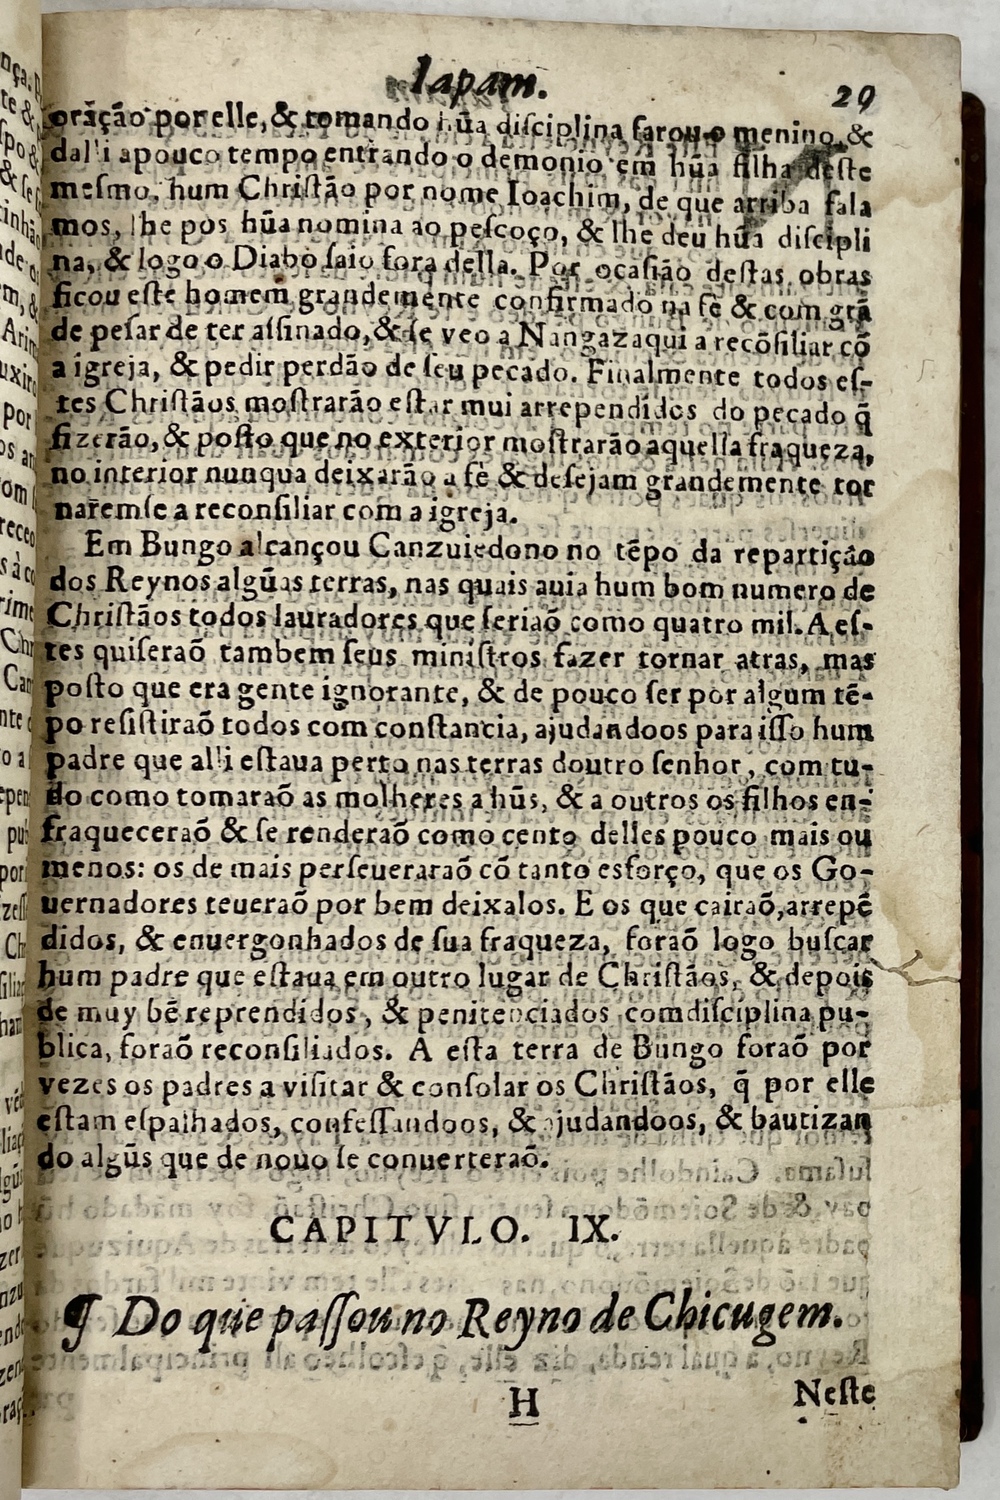 Iapam. 29
oração por elle, & tomando hũa disciplina sarou o menino, &
dalli apouco tempo entrando o demonio em hũa filha deste
mesmo, hum Christão por nome Ioachim, de que arriba fala
mos, lhe pos hũa nomina ao pescoço, & lhe deu hũa discipli
na, & logo o Diabo saio fora della. Por ocasião destas obras
ficou este homem grandemente confirmado na fè & com grã
de pesar de ter assinado, & se veo a Nangazaqui a recõsiliar cõ
a igreja, & pedir perdão de seu pecado. Finalmente todos es-
tes Christãos mostrarão estar mui arrependidos do pecado q̃
fizerão, & posto que no exterior mostrarão aquella fraqueza,
no interior nunqua deixarão a fè & desejam grandemente tor
naremse a reconsiliar com a igreja.
Em Bungo alcançou Canzuiedono no tẽpo da repartição
dos Reynos algũas terras, nas quais auia hum bom numero de
Christãos todos lauradores que seriaõ como quatro mil. A es-
tes quiseraõ tambem seus ministros fazer tornar atras, mas
posto que era gente ignorante, & de pouco ser por algum tẽ-
po resistiraõ todos com constancia, ajudandoos para isso hum
padre que alli estaua perto nas terras doutro senhor, com tu-
do como tomaraõ as molheres a hũs, & a outros os filhos en-
fraqueceraõ & se renderaõ como cento delles pouco mais ou
menos: os de mais perseueraraõ cõ tanto esforço, que os Go-
uernadores teueraõ por bem deixalos. E os que cairaõ, arrepẽ
didos, & enuergonhados de sua fraqueza, foraõ logo buscar
hum padre que estaua em outro lugar de Christãos, & depois
de muy bẽ reprendidos, & penitenciados com disciplina pu-
blica, foraõ reconsiliados. A esta terra de Bungo foraõ por
vezes os padres a visitar & consolar os Christãos, q̃ por elle
estam espalhados, confessandoos, & ajudandoos, & bautizan
do algũs que de nouo se conuerteraõ.
CAPITVLO. IX.
¶ Do que passou no Reyno de Chicugem.
H Neste